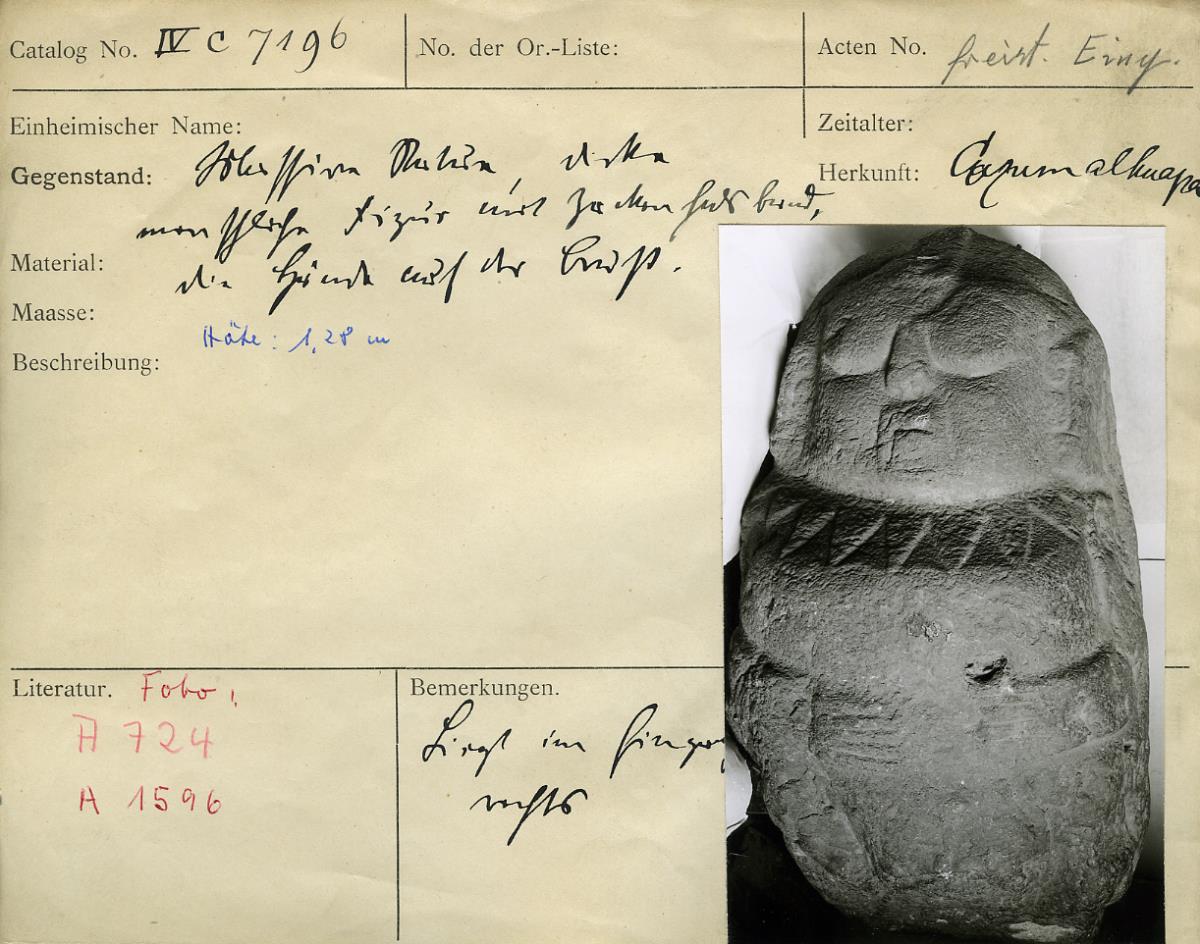 Catalog No. IV C 7196
No. der Or.-Liste:
Acten No. freist. Eing.
Einheimischer Name:
Zeitalter:
Gegenstand: Massive Statue, dicke
Herkunft: Cozumalhuapa
menschliche Figur mit Zackenhalsband,
Material:
die Hände auf der Brust.
Maasse:
Höhe: 1,28 m
Beschreibung:
Literatur. Foto:
A 724
A 1596
Bemerkungen.
Liegt im
rechts